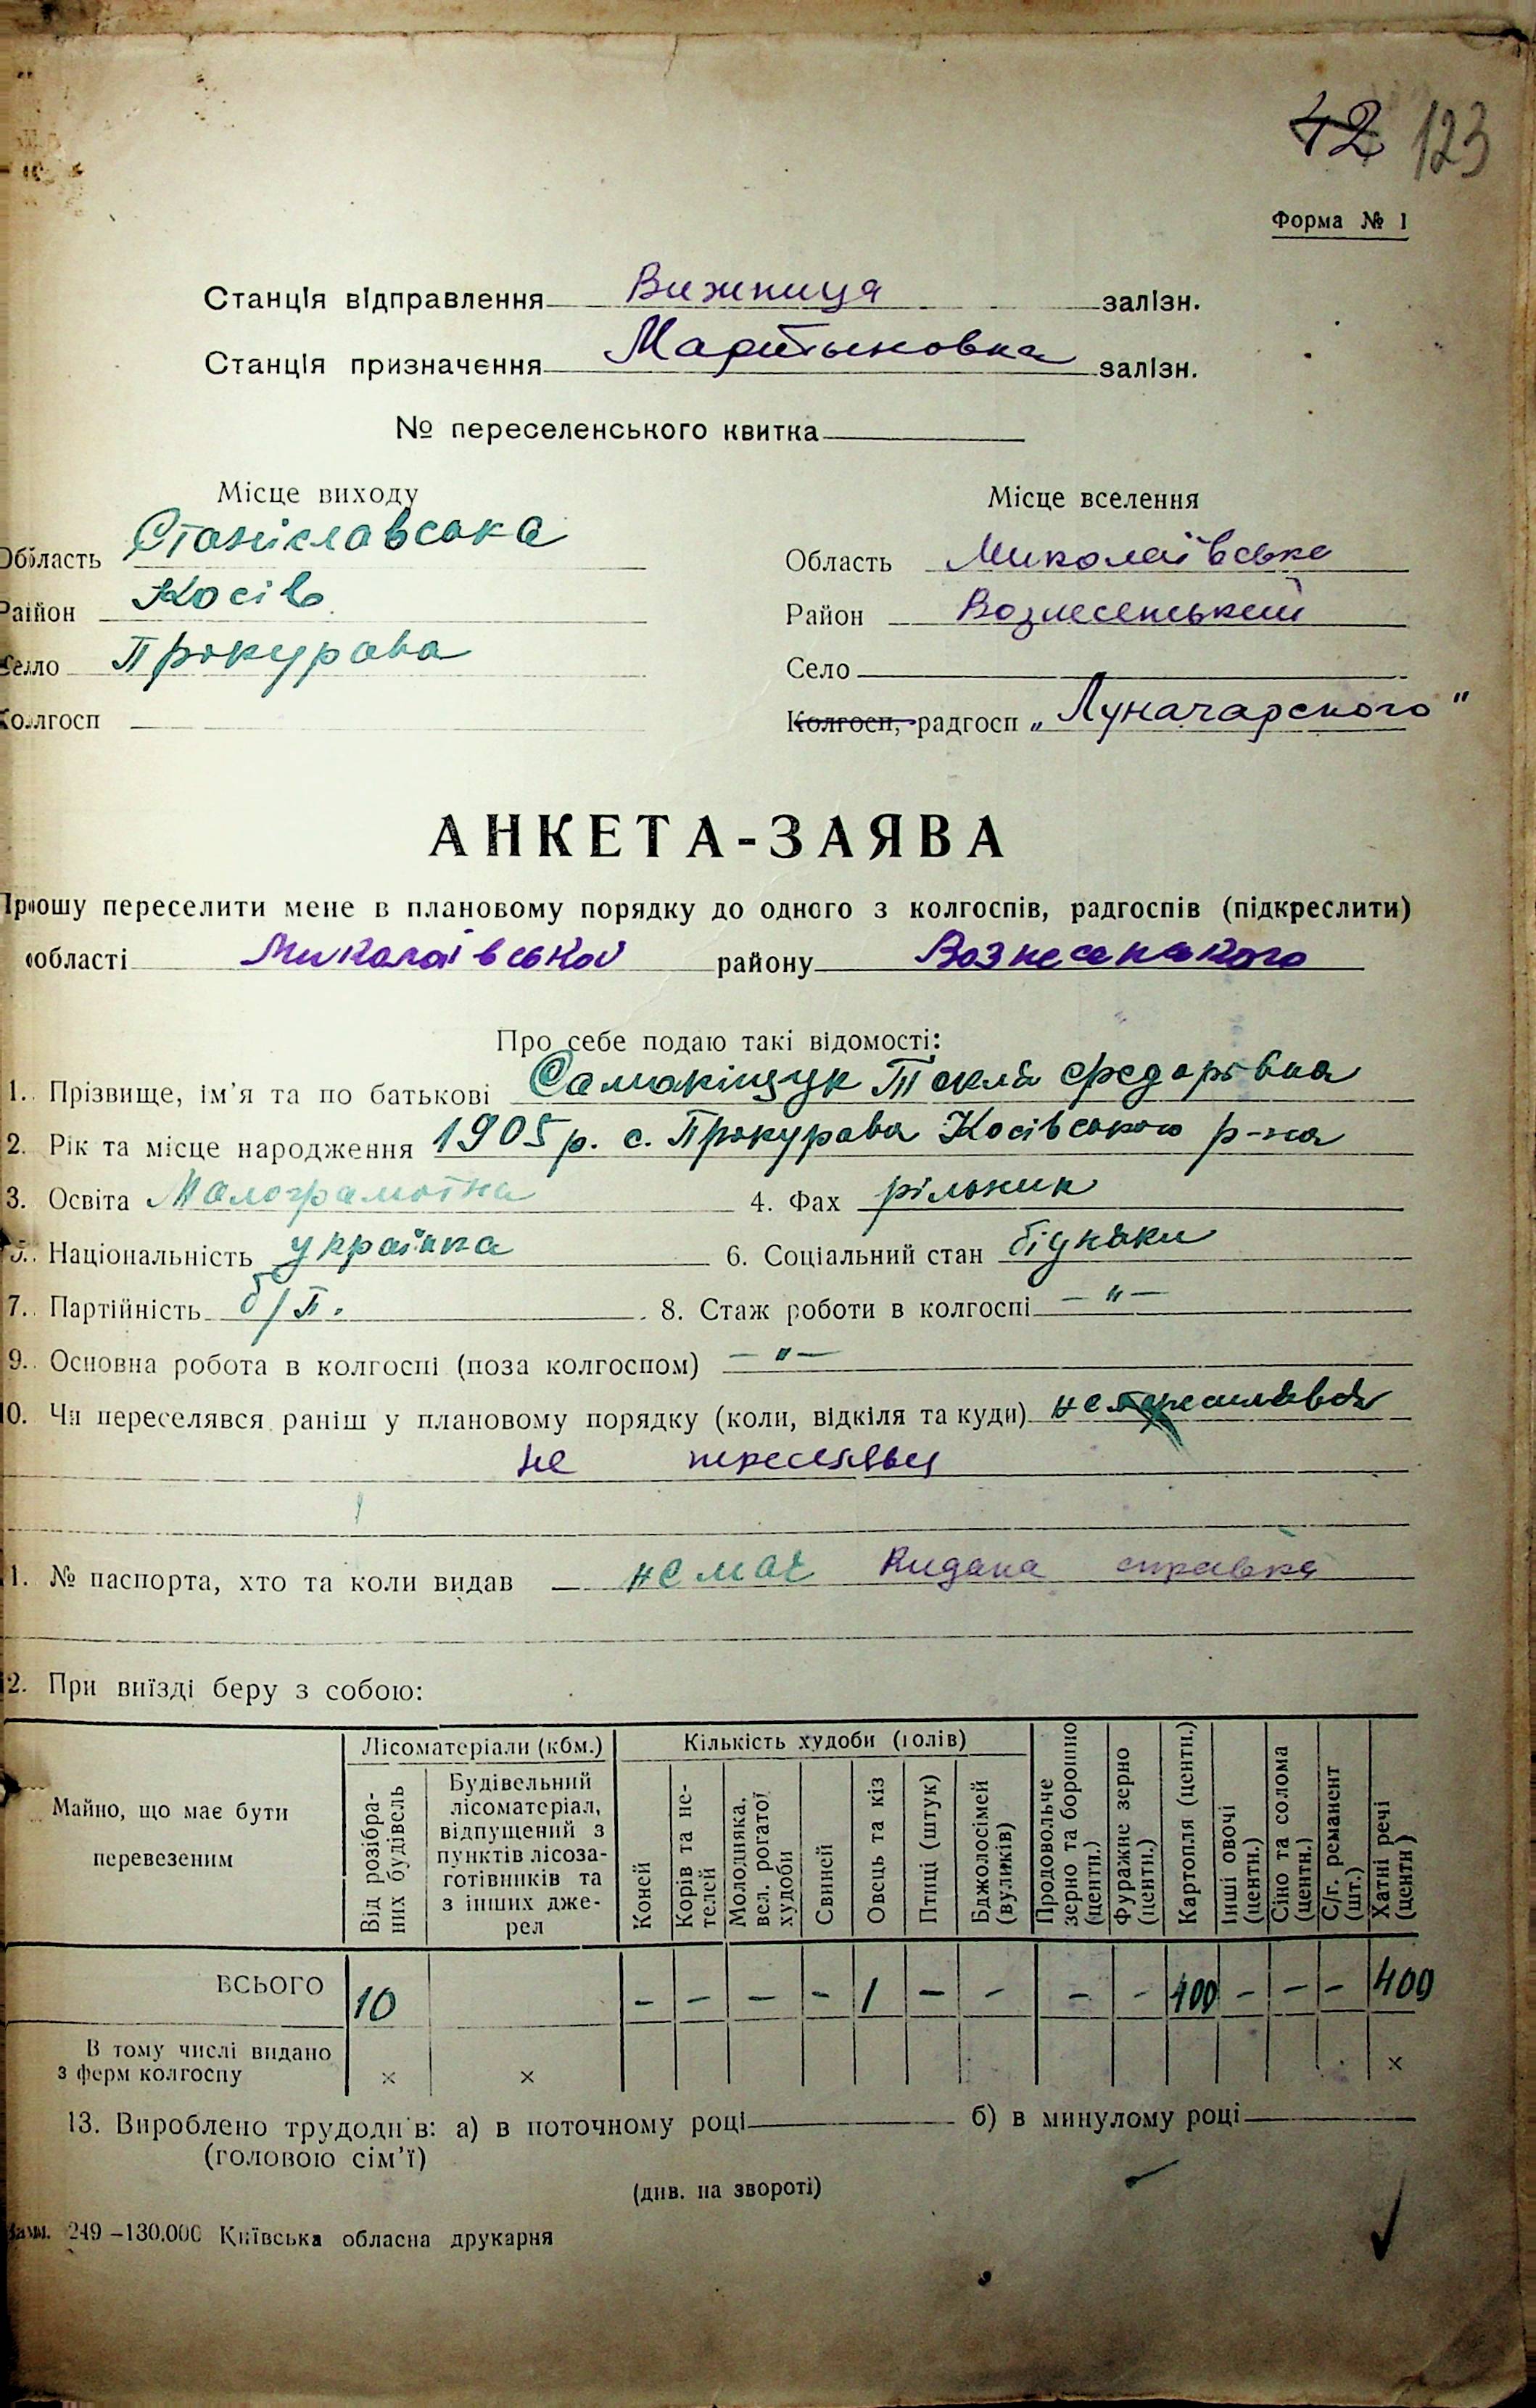 42 123
Форма № 1
Станція відправлення Вижниця залізн.
Станція призначення Мартыновка залізн.
№ переселенського квитка
Місце виходу
Область Станіславська
Район Косів
Село Прокурава
Колгосп
Місце вселення
Область Миколаївська
Район Вознесенський
Село
Колгосп, радгосп „Луначарского"
АНКЕТА-ЗАЯВА
Прошу переселити мене в плановому порядку до одного з колгоспів, радгоспів (підкреслити)
області Миколаївської району Вознесенского
Про себе подаю такі відомості:
1. Прізвище, ім'я та по батькові Самокіщук Текля Федорівна
2. Рік та місце народження 1905 р. с. Прокурава Косівського р-на
3. Освіта Малограмотна 4. Фах рільник
5. Національність українка 6. Соціальний стан бідняки
7. Партійність б/п. 8. Стаж роботи в колгоспі — „ —
9. Основна робота в колгоспі (поза колгоспом) — „ —
10. Чи переселявся раніш у плановому порядку (коли, відкіля та куди) не
не переселявся
11. № паспорта, хто та коли видав — немає Видана справка
12. При виїзді беру з собою:
Майно, що має бути перевезеним
Лісоматеріали (кбм.)
Від розібра-
них будівель
Будівельний
лісоматеріал,
відпущений з
пунктів лісоза-
готівників та
з інших дже-
рел
Кількість худоби (голів)
Коней
Корів та не-
телей
Молодняка,
вел. рогатої
худоби
Свиней
Овець та кіз
Птиці (штук)
Бджолосімей
(вуликів)
Продовольче
зерно та борошно
(центн.)
Фуражне зерно
(центн.)
Картопля (центн.)
Інші овочі
(центн.)
Сіно та солома
(центн.)
С/г. реманент
(шт.)
Хатні речі
(центн)
ВСЬОГО 10 – – – – 1 – – – – 400 – – – 400
В тому числі видано
з ферм колгоспу × × ×
13. Вироблено трудоднів: а) в поточному році б) в минулому році
(головою сім'ї)
(див. на звороті)
Зам. 249–130.000 Київська обласна друкарня